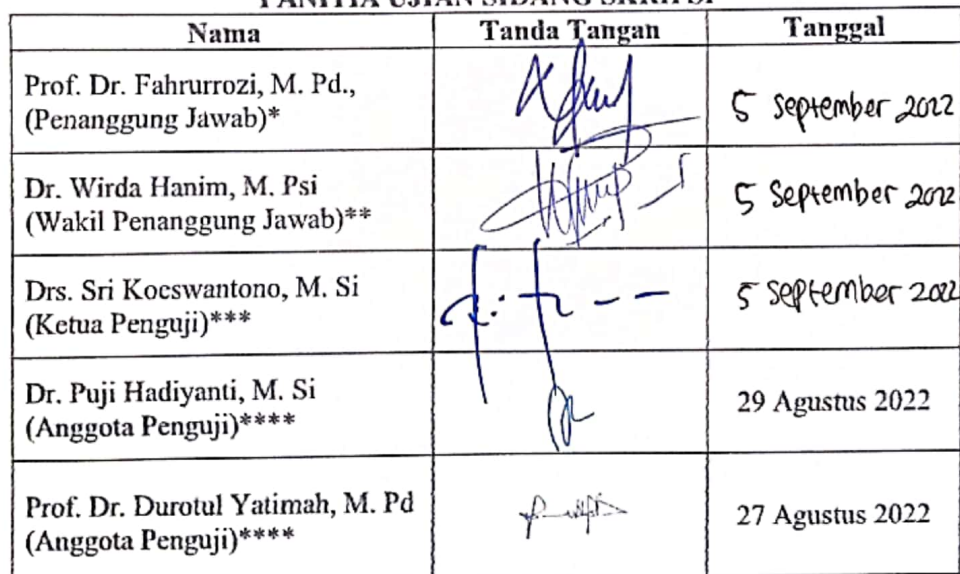 PANITIA UJIAN SIDANG SKRIPSI
Nama Tanda Tangan Tanggal
Prof. Dr. Fahrurrozi, M. Pd.,
(Penanggung Jawab)*
5 September 2022
Dr. Wirda Hanim, M. Psi
(Wakil Penanggung Jawab)**
5 September 2022
Drs. Sri Koeswantono, M. Si
(Ketua Penguji)***
5 September 2022
Dr. Puji Hadiyanti, M. Si
(Anggota Penguji)****
29 Agustus 2022
Prof. Dr. Durotul Yatimah, M. Pd
(Anggota Penguji)****
27 Agustus 2022